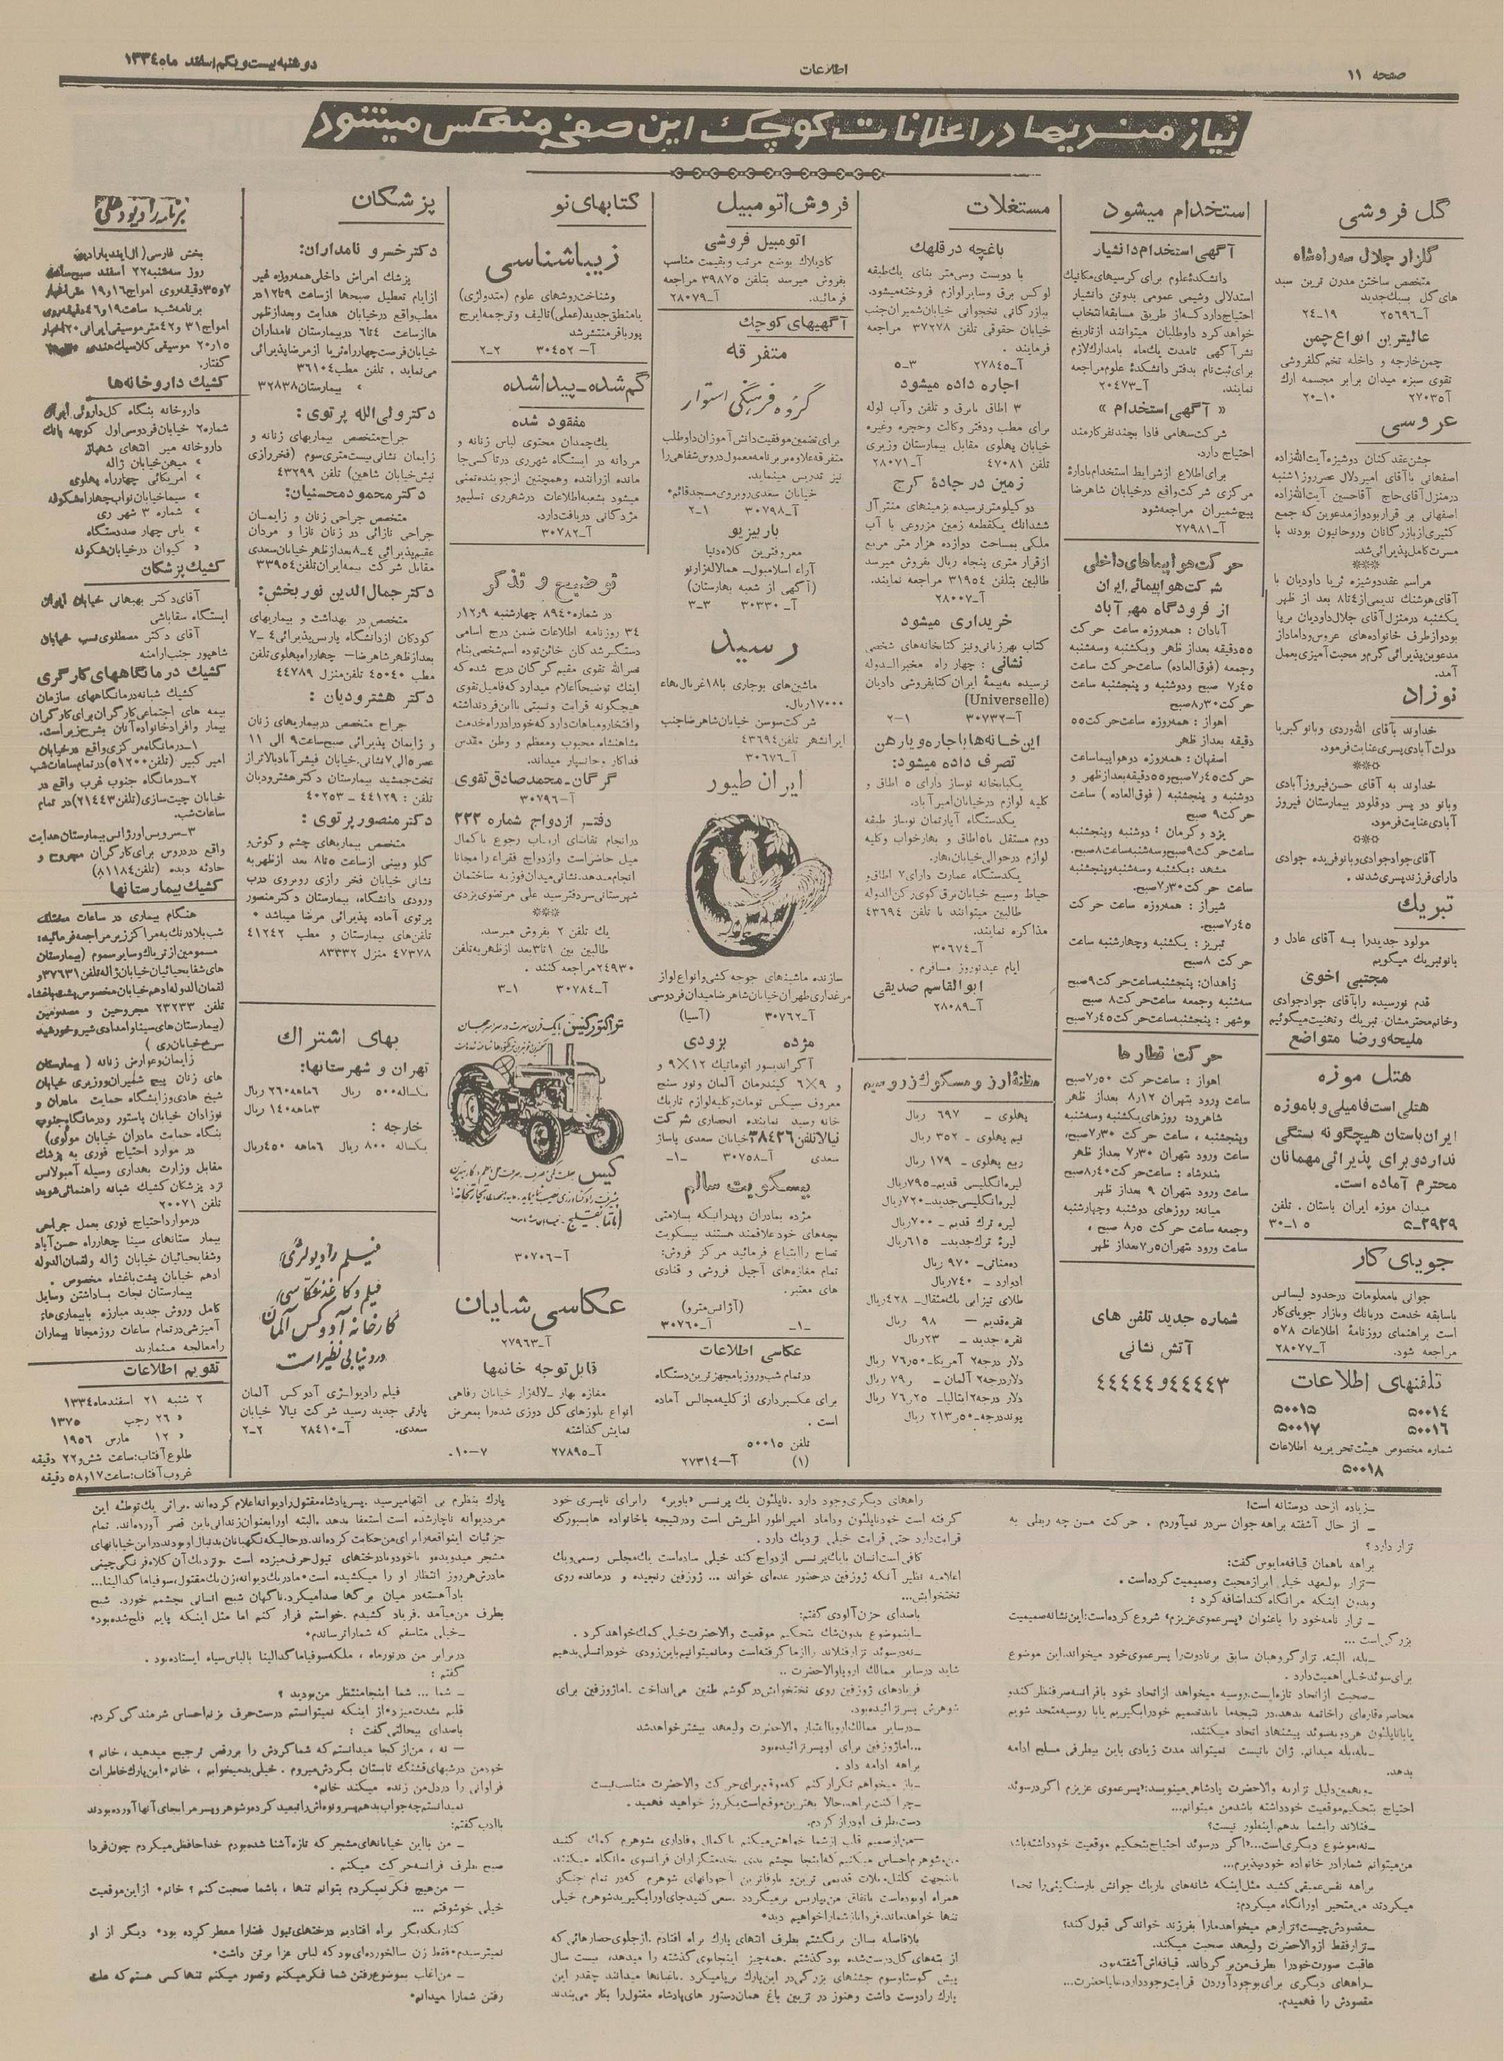 صفحه ۱۱
اطلاعات
دوشنبه بیست و یکم اسفند ماه ۱۳۳۴
نیازمندیها در اعلانات کوچک این صفحه منعکس میشود
گل فروشی
گلزار جلال سه راه شاه
متخصص ساختن مدرن ترین سبد
های گل بسبک جدید
آ-۲۵۶۹۶ ۱۹-۲۴
عالیترین انواع چمن
چمن خارجه و داخله تخم گلفروشی
تقوی سبزه میدان برابر مجسمه ارك
آ-۲۷۰۳۵ ۱۰-۲۰
عروسی
جشن عقد کنان دوشیزه آیت الله زاده
اصفهانی با آقای امیر دلال عصر روز ۱ شنبه
در منزل آقای حاج آقا حسین آیت الله زاده
اصفهانی بر قرار بود و از مدعوین که جمع
کثیری از بازرگانان و روحانیون بودند با
مسرت کامل پذیرائی شد.
***
مراسم عقد دوشیزه ثریا داودیان با
آقای هوشنگ ندیمی از ۴ تا ۸ بعد از ظهر
یکشنبه در منزل آقای جلال داودیان برپا
بود و از طرف خانواده های عروس و داماد از
مدعوین پذیرائی گرم و محبت آمیزی بعمل
آمد.
نوزاد
خداوند بآقای الله وردی و بانو کبریا
دولت آبادی پسری عنایت فرمود.
***
خداوند به آقای حسن فیروز آبادی
وبانو دو پسر دوقلو در بیمارستان فیروز
آبادی عنایت فرمود.
***
آقای جواد جوادی و بانو فریده جوادی
دارای فرزند پسری شدند .
تبریك
مولود جدید را به آقای عادل و
بانو تبریك میگویم
مجتبی اخوی
قدم نورسیده را بآقای جواد جوادی
و خانم محترمشان تبریك و تهنیت میگوئیم
ملیحه و رضا متواضع
هتل موزه
هتلی است فامیلی و با موزه
ایران باستان هیچگونه بستگی
ندارد و برای پذیرائی مهمانان
محترم آماده است.
میدان موزه ایران باستان . تلفن
۵-۲۹۲۹ ۱۵-۳۰
جویای کار
جوانی با معلومات در حدود لیسانس
با سابقه خدمت در بانك و بازار جویای کار
است براهنمای روزنامهٔ اطلاعات ۵۷۸
مراجعه شود. آ-۲۸۰۷۷
تلفنهای اطلاعات
۵۰۰۱۴ ۵۰۰۱۵
۵۰۰۱۶ ۵۰۰۱۷
شماره مخصوص هیئت تحریریه اطلاعات
۵۰۰۱۸
استخدام میشود
آگهی استخدام دانشیار
دانشکده علوم برای کرسیهای مکانیك
استدلالی و شیمی عمومی بدو تن دانشیار
احتیاج دارد که از طریق مسابقه انتخاب
خواهد کرد داوطلبان میتوانند از تاریخ
نشر آگهی تا مدت یك ماه با مدارك لازم
برای ثبت نام بدفتر دانشکدهٔ علوم مراجعه
نمایند. آ-۲۰۴۷۳
« آگهی استخدام »
شرکت سهامی فادا بچند نفر کارمند
احتیاج دارد.
برای اطلاع از شرایط استخدام باداره
مرکزی شرکت واقع در خیابان شاهرضا
پیچ شمیران مراجعه شود
آ-۲۷۹۸۱
حرکت هواپیماهای داخلی
شرکت هواپیمائی ایران
از فرودگاه مهرآباد
آبادان : همه روزه ساعت حرکت
۵۵ دقیقه بعد از ظهر و یکشنبه و سه شنبه
و جمعه (فوق العاده) ساعت حرکت ساعت
۷٫۴۵ صبح و دوشنبه و پنجشنبه ساعت
حرکت ۸٫۳۰ صبح
اهواز : همه روزه ساعت حرکت ۵۵
دقیقه بعد از ظهر
اصفهان : همه روزه دو هواپیما ساعت
حرکت ۷٫۴۵ صبح و ۵۵ دقیقه بعد از ظهر و
دوشنبه و پنجشنبه ( فوق العاده ) ساعت
حرکت ۹ صبح
یزد و کرمان : دوشنبه و پنجشنبه
ساعت حرکت ۹ صبح و سه شنبه ساعت ۸ صبح.
مشهد : یکشنبه و سه شنبه و پنجشنبه
ساعت حرکت ۷٫۳۰ صبح.
شیراز : همه روزه ساعت حرکت
۷٫۴۵ صبح.
تبریز : یکشنبه و چهارشنبه ساعت
حرکت ۸ صبح
زاهدان: پنجشنبه ساعت حرکت ۹ صبح
سه شنبه و جمعه ساعت حرکت ۸ صبح
بوشهر : پنجشنبه ساعت حرکت ۷٫۴۵ صبح
حرکت قطارها
اهواز : ساعت حرکت ۷٫۵۰ صبح
ساعت ورود بتهران ۸٫۱۲ بعد از ظهر
شاهرود: روزهای یکشنبه و سه شنبه
و پنجشنبه ، ساعت حرکت ۷٫۳۰ صبح،
ساعت ورود تهران ۷٫۳۰ بعد از ظهر
بندرشاه : ساعت حرکت ۸٫۴۰ صبح
ساعت ورود شهران ۹ بعد از ظهر
میانه: روزهای دوشنبه و چهارشنبه
وجمعه ساعت حرکت ۸٫۵ صبح ،
ساعت ورود تهران ۷٫۵ بعد از ظهر
شماره جدید تلفن های
آتش نشانی
۴۴۴۴۳ و ۴۴۴۴۴
مستغلات
باغچه در قلهك
با دویست و سی متر بنای یك طبقه
لوکس برق و سایر لوازم فروخته میشود.
ببازرگانی نخجوانی خیابان شمیران جنب
خیابان حقوقی تلفن ۳۷۲۷۸ مراجعه
فرمایند .
آ-۲۷۸۴۵ ۳-۵
اجاره داده میشود
۳ اطاق با برق و تلفن و آب لوله
برای مطب و دفتر وکالت و حجره و غیره
خیابان پهلوی مقابل بیمارستان وزیری
تلفن ۴۷۰۸۱ آ-۲۸۰۷۱
زمین در جادهٔ کرج
دو کیلومتر نرسیده بزمینهای منتر آل
ششدانك یکقطعه زمین مزروعی با آب
ملکی بمساحت دوازده هزار متر مربع
از قرار متری پنجاه ریال بفروش میرسد
طالبین بتلفن ۳۱۹۵۴ مراجعه نمایند.
آ-۲۸۰۰۷
خریداری میشود
کتاب بهر زبانی و نیز کتابخانه های شخصی
نشانی : چهار راه مخبرالدوله
نرسیده به بیمهٔ ایران کتابفروشی دادیان
(Universelle)
آ-۳۰۷۳۲ ۱-۲
این خانه ها با جاره و یا رهن
تصرف داده میشود:
یکبابخانه نوساز دارای ۵ اطاق و
کلیه لوازم در خیابان امیرآباد.
یکدستگاه آپارتمان نوساز طبقه
دوم مستقل با ۵ اطاق و نهارخواب و کلیه
لوازم در حوالی خیابان بهار.
یکدستگاه عمارت دارای ۷ اطاق و
حیاط وسیع خیابان برق کوی رکن الدوله
طالبین میتوانند با تلفن ۴۳۶۹۴
مذاکره نمایند.
آ-۳۰۶۷۴
ایام عید نوروز مسافرم .
ابوالقاسم صدیقی
آ-۲۸۰۸۹
مظنهٔ ارز و مسکوك زر و سیم
پهلوی - ۶۹۷ ریال
نیم پهلوی - ۳۵۲ ریال
ربع پهلوی - ۱۷۹ ریال
لیره انگلیسی قدیم-۷۹۵ ریال
لیره انگلیسی جدید-۷۲۰ ریال
لیره ترك قدیم - ۷۰۰ ریال
لیرهٔ ترك جدید- ۶۱۵ ریال
ده منائی- ۹۷۰ ریال
ادوارد - ۷۴۰ ریال
طلای تیزابی یك مثقال-۴۲۸ ریال
نقره قدیم — ۹۸ ریال
نقره جدید - ۲۳ ریال
دلار درجه ۲ آمریکا-۷۶٫۵۰ ریال
دلار درجه ۲ آلمان - ۷۹٫ ریال
دلار درجه ۲ ایتالیا- ۷۶٫۲۵ ریال
پوند درجه- ۲۱۳٫۵۰ ریال
فروش اتومبیل
اتومبیل فروشی
کادیلاك بوضع مرتب و بقیمت مناسب
بفروش میرسد بتلفن ۳۹۸۷۵ مراجعه
فرمائید. آ-۲۸۰۷۹
آگهیهای کوچك
متفرقه
گروه فرهنگی استوار
برای تضمین موفقیت دانش آموزان داوطلب
متفرقه علاوه بر برنامه معمول دروس شفاهی را
نیز تدریس مینماید.
خیابان سعدی روبروی مسجد قائم
آ-۳۰۷۹۸ ۱-۲
باربیزیو
معروفترین کلاه دنیا
آراء اسلامبول- همالاله زار نو
(آگهی از شعبه بهارستان)
آ-۳۰۳۳۰ ۳-۳
رسید
ماشین های بوجاری با ۱۸ غربال بهاء
۱۷۰۰۰ ریال.
شرکت سوسن خیابان شاهرضا جنب
ایرانشهر تلفن ۴۳۶۹۴
آ-۳۰۶۷۶
ایران طیور
سازنده ماشینهای جوجه کشی و انواع لوازم
مرغداری طهران خیابان شاهرضا میدان فردوسی
آ-۳۰۷۶۲ (آسیا)
مژده بزودی
آگراندیسور اتوماتیك ۱۲×۹ و
۹×۶ و کیندرمان آلمان و نور سنج
معروف سیکس تومات و کلیه لوازم تاریك
خانه رسید نماینده انحصاری شرکت
نیالا تلفن ۳۸۴۲۶ خیابان سعدی پاساژ
سعدی آ-۳۰۷۵۸ -۱-
بیسگویت سالم
مژده بمادران و پدرانیکه بسلامتی
بچه های خود علاقمند هستند بیسکویت
تصاح را ابتیاع فرمائید مرکز فروش:
تمام مغازه های آجیل فروشی و قنادی
های معتبر.
(آژانس مترو)
-۱- آ-۳۰۷۶۰
عکاسی اطلاعات
در تمام شب و روز با مجهزترین دستگاه
برای عکسبرداری از کلیه مجالس آماده
است .
تلفن ۵۰۰۱۵
(۱) آ-۲۷۳۱۴
کتابهای نو
زیباشناسی
وشناخت روشهای علوم (متدولژی)
یا منطق جدید (عملی) تالیف و ترجمه ایرج
پورباقر منتشر شد
آ-۳۰۴۵۲ ۲-۲
گمشده-پیداشده
مفقود شده
یك چمدان محتوی لباس زنانه و
مردانه در ایستگاه شهرری در تاکسی جا
مانده از راننده و همچنین از جوینده تمنی
میشود بشعبه اطلاعات در شهرری تسلیم و
مژدگانی دریافت دارد.
آ-۳۰۷۸۲
توضیح و تذکر
در شماره ۸۹۴۰ چهارشنبه ۱۲٫۹٫
۳۴ روزنامه اطلاعات ضمن درج اسامی
دستگیر شدگان خائن توده اسم شخصی بنام
نصرالله تقوی مقیم گرگان درج شده که
اینك توضیحاً اعلام میدارد که فامیل تقوی
هیچگونه قرابت و نسبتی با این فرد نداشته
و افتخار و مباهات دارد که خود را در راه خدمت
شاهنشاه محبوب و معظم و وطن مقدس
فداکار و جانسپار میداند.
گرگان-محمدصادق تقوی
آ-۳۰۷۹۶
دفتر ازدواج شماره ۲۲۲
در انجام تقاضای ارباب رجوع با کمال
میل حاضر است و ازدواج فقراء را مجانا
انجام میدهد. نشانی میدان فوزیه ساختمان
شهرستانی سردفتر سید علی مرتضوی یزدی
***
یك تلفن ۲ بفروش میرسد.
طالبین بین ۱ تا ۳ بعد از ظهر به تلفن
۲۴۹۳۰ مراجعه کنند .
آ-۳۰۷۸۴ ۱-۳
تراکتور کیس
کیس
آ-۳۰۷۰۶
عکاسی شایان
آ-۲۷۹۶۳
قابل توجه خانمها
مغازه بهار - لاله زار خیابان رفاهی
انواع بلوزهای گل دوزی شده را بمعرض
نمایش گذاشته
آ-۲۷۸۹۵ ۷-۱۰.
پزشکان
دکتر خسرو نامداران:
پزشك امراض داخلی همه روزه غیر
از ایام تعطیل صبحها از ساعت ۹ تا ۱۲ در
مطب واقع در خیابان هدایت و بعد از ظهر
ها از ساعت ۴ تا ۶ در بیمارستان نامداران
خیابان فرصت چهارراه ثریا از مرضا پذیرائی
می نماید . تلفن مطب ۳۶۱۰۴
» بیمارستان ۳۲۸۳۸
دکتر ولی الله پرتوی :
جراح متخصص بیماریهای زنانه و
زایمان نشانی بیست متری سوم (فخر رازی
نبش خیابان شاهین) تلفن ۴۳۲۹۹
دکتر محمود محسنیان:
متخصص جراحی زنان و زایمان
جراحی نازائی در زنان نازا و مردان
عقیم پذیرائی ۴-۸ بعد از ظهر خیابان سعدی
مقابل شرکت بیمه ایران تلفن ۳۳۹۵۴
دکتر جمال الدین نوربخش:
متخصص در بهداشت و بیماریهای
کودکان از دانشگاه پاریس پذیرائی ۴-۷
بعد از ظهر شاهرضا- چهارراه پهلوی تلفن
مطب ۴۵۰۴۰ تلفن منزل ۴۴۷۸۹
دکتر هشترودیان :
جراح متخصص در بیماریهای زنان
و زایمان پذیرائی صبح ساعت ۹ الی ۱۱
عصر ۵ الی ۷ نشانی. خیابان فیشرآباد بالاتر از
تخت جمشید بیمارستان دکتر هشترودیان
تلفن : ۴۴۱۲۹ - ۴۰۲۵۳
دکتر منصور پرتوی :
متخصص بیماریهای چشم و گوش و
گلو و بینی از ساعت ۵ تا ۸ بعد از ظهر به
نشانی خیابان فخر رازی روبروی درب
ورودی دانشگاه، بیمارستان دکتر منصور
پرتوی آماده پذیرائی مرضا میباشد *
تلفن های بیمارستان و مطب ۴۱۲۴۲
۴۷۳۷۸ منزل ۸۳۳۳۲
بهای اشتراك
تهران و شهرستانها:
یکساله ۵۰۰ ریال ۶ ماهه ۲۶۰ ریال
۳ ماهه ۱۴۰ ریال
خارجه :
یکساله ۸۰۰ ریال ۶ ماهه ۴۵۰ ریال
فیلم رادیولژی
فیلم و کاغذ عکاسی
کارخانه آدوکس آلمان
در دنیا بی نظیر است
فیلم رادیولژی آدوکس آلمان
پارتی جدید رسید شرکت نیالا خیابان
سعدی. آ-۲۸۴۱۰ ۲-۲
برنامه رادیو دهلی
بخش فارسی (ال ایندیا رادیو)
گفتار.
کشیك داروخانه ها
داروخانه بنگاه کل داروئی ایران
شماره ۲ خیابان فردوسی اول کوچه بانك
داروخانه میر انتهای شهباز
» میهن خیابان ژاله
» آمریکائی چهارراه پهلوی
» سیما خیابان نواب چهارراه شکوفه
» شماره ۳ شهر ری
» یاس چهار صد دستگاه
» کیوان در خیابان شکوفه
کشیك پزشکان
آقای دکتر بهبهانی خیابان ایران
ایستگاه سقاباشی
آقای دکتر مصطفوی نسب خیابان
شاهپور جنب ارامنه
کشیك درمانگاههای کارگری
کشیك شبانه درمانگاههای سازمان
بیمه های اجتماعی کارگران برای کارگران
بیمار و افراد خانواده آنان بشرح زیر است.
۱-درمانگاه مرکزی واقع در خیابان
امیرکبیر (تلفن ۵۱۲۰۰) در تمام ساعات شب
۲-درمانگاه جنوب غرب واقع در
خیابان چیت سازی (تلفن ۲۱۴۴۳) در تمام
ساعات شب.
۳-سرویس اورژانس بیمارستان هدایت
واقع در دروس برای کارگران مجروح و
حادثه دیده (تلفن ۸۱۱۸۴)
کشیك بیمارستانها
هنگام بیماری در ساعات مختلف
شب بلادرنگ به مراکز زیر مراجعه فرمائید:
مسمومین از تریاك و سایر سموم (بیمارستان
های شفا یحیائیان خیابان ژاله تلفن ۳۷۶۳۱ و
لقمان الدوله ادهم خیابان مخصوص پشت باغشاه
تلفن ۲۳۲۳۳ مجروحین و مصدومین
(بیمارستان های سینا و امدادی شیر و خورشید
سرخ خیابان ری )
زایمان و عوارض زنانه ( بیمارستان
های زنان پیچ شمیران و وزیری خیابان
شیخ هادی و زایشگاه حمایت مادران و
نوزادان خیابان پاستور و درمانگاه جنوب
بنگاه حمایت مادران خیابان مولوی)
در موارد احتیاج فوری به پزشك
مقابل وزارت بهداری وسیله آمبولانس
نزد پزشکان کشیك شبانه راهنمائی شوید
تلفن ۲۰۰۷۱
در موارد احتیاج فوری بعمل جراحی
بیمارستانهای سینا چهارراه حسن آباد
و شفا یحیائیان خیابان ژاله و لقمان الدوله
ادهم خیابان پشت باغشاه مخصوص .
بیمارستان نجات با داشتن وسایل
کامل و روش جدید مبارزه با بیماری هاء
آمیزشی در تمام ساعات روز مجانا بیماران
را معالجه مینماید
تقویم اطلاعات
۲ شنبه ۲۱ اسفندماه ۱۳۳۴
» ۲۶ رجب ۱۳۷۵
» ۱۲ مارس ۱۹۵۶
طلوع آفتاب: ساعت شش و ۲۲ دقیقه
غروب آفتاب: ساعت ۱۷ و ۵۸ دقیقه
-زیاده از حد دوستانه است!
- از حال آشفته براهه جوان سر در نمیآوردم . حرکت مسن چه ربطی به
تزار دارد ؟
براهه با همان قیافه مأیوس گفت:
-تزار بولیعهد خیلی ابراز محبت و صمیمیت کرده است .
وبدون اینکه مرا نگاه کند اضافه کرد :
- تزار نامه خود را با عنوان «پسر عموی عزیزم» شروع کرده است؛ این نشانه صمیمیت
بزرگی است ...
-بله، البته. تزار گروهبان سابق برنادوت را پسر عموی خود میخواهد. این موضوع
برای سوئد خیلی اهمیت دارد .
-صحبت از اتحاد تازه ایست، روسیه میخواهد از اتحاد خود با فرانسه صرفنظر کند و
محاصره قاره ای را خاتمه بدهد. در نتیجه ما باید تصمیم خود را بگیریم یا با روسیه متحد شویم
یا با ناپلئون هر دو به سوئد پیشنهاد اتحاد میکنند.
-بله، بله میدانم. ژان باتیست نمیتواند مدت زیادی باین بیطرفی مسلح ادامه
بدهد.
-و بهمین دلیل تزار به والاحضرت پادشاهی مینویسد: «پسر عموی عزیزم اگر در سوئد
احتیاج بتحکیم موقعیت خود داشته باشد من میتوانم...
-فنلاند را بشما بدهم. اینطور نیست؟
-نه، موضوع دیگری است...«اگر در سوئد احتیاج بتحکیم موقعیت خود داشته باشد
من میتوانم شمارا در خانواده خود بپذیرم...
براهه نفس عمیقی کشید مثل اینکه شانه های باریك جوانش بار سنگینی را تحمل
میکردند من متحیر او را نگاه میکردم:
-مقصودش چیست؟ تزار هم میخواهد ما را بفرزند خواندگی قبول کند؟
-تزار فقط از والاحضرت ولیعهد صحبت میکند.
عاقبت صورت خود را بطرف من بر گرداند. قیافه اش آشفته بود.
-راههای دیگری برای بوجود آوردن قرابت وجود دارد، علیاحضرت...
مقصودش را فهمیدم.
راههای دیگری وجود دارد . ناپلئون یك پرنسس «باویر» را برای ناپسری خود
گرفته است خود ناپلئون و داماد امپراطور اطریش است و در نتیجه با خانواده هابسبورك
قرابت دارد حتی قرابت خیلی نزدیك دارد .
کافی است انسان با یك پرنسس ازدواج کند خیلی ساده است یك مجلس رسمی و یك
اعلامیه نظیر آنکه ژوزفین در حضور عده ای خواند ... ژوزفین رنجیده و درمانده روی
تختخوابش...
با صدای حزن آلودی گفتم:
-این موضوع بدون شك بتحکیم موقعیت والاحضرت خیلی کمك خواهد کرد .
-نه در سوئد تزار فنلاند را از ما گرفته است و ما نمیتوانیم باین زودی خود را تسلی بدهیم
شاید در سایر ممالك اروپا والاحضرت ..
فریادهای ژوزفین روی تختخوابش در گوشم طنین می انداخت . اما ژوزفین برای
شوهرش پسر نزائیده بود.
-در سایر ممالك اروپا اعتبار والاحضرت ولیعهد بیشتر خواهد شد
...اما ژوزفین برای او پسر نزائیده بود
براهه ادامه داد .
-باز میخواهم تکرار کنم که موقع برای حرکت والاحضرت مناسب نیست
-چرا کنت براهه، حالا بهترین موقع است یکروز خواهید فهمید .
دست بطرف او دراز کردم.
پارك بنظرم بی انتها میرسید . پسر پادشاه مقتول را دیوانه اعلام کرده اند . براثر یك توطئه این
مرد دیوانه ناچار شده است استعفا بدهد والبته او را بعنوان زندانی باین قصر آورده اند. تمام
جزئیات این واقعه را برای من حکایت کرده اند. در حالیکه نگهبانان بدنبال او بودند در این خیابانهای
مشجر میدویده و با خود و با درختهای تیول حرف میزده است . نزدیك آن کلاه فرنگی چینی
مادرش هر روز انتظار او را میکشیده است * مادر یك دیوانه، زن یك مقتول، سوفیا ماگدالینا...
باد آهسته در میان برگها صدا میکرد. ناگهان شبح انسانی بچشمم خورد. شبح
بطرف من میآمد . فریاد کشیدم. خواستم فرار کنم اما مثل اینکه پایم فلج شده بود*
-خیلی متاسفم که شمارا ترساندم*
در برابر من در نور ماه ، ملکه سوفیا ماگدالینا با لباس سیاه ایستاده بود .
گفتم :
- شما ... شما اینجا منتظر من بودید ؟
قلبم بشدت میزد * از اینکه نمیتوانستم درست حرف بزنم احساس شرمندگی کردم.
با صدای بیحالتی گفت :
- نه ، من از کجا میدانستم که شما گردش را بر رقص ترجیح میدهید ، خانم ؟
خود من در شبهای قشنگ تابستان بگردش میروم . خیلی بد میخوابم ، خانم * این پارك خاطرات
فراوانی را در دل من زنده میکند خانم*
نمیدانستم چه جواب بدهم پسر و نوه اش را تبعید کرده و شوهر و پسر مرا بجای آنها آورده بودند
با ادب گفتم:
- من با این خیابانهای مشجر که تازه آشنا شده بودم خداحافظی میکردم چون فردا
صبح بطرف فرانسه حرکت میکنم .
- من هیچ فکر نمیکردم بتوانم تنها ، باشما صحبت کنم ؟ خانم * از این موقعیت
خیلی خوشوقتم ...
کنار یکدیگر براه افتادیم درختهای تیول فضا را معطر کرده بود* دیگر از او
نمیترسیدم * فقط زن سالخورده ای بود که لباس عزا برتن داشت*
- من اغلب بموضوع رفتن شما فکر میکنم و تصور میکنم تنها کسی هستم که علت
رفتن شما را میدانم*